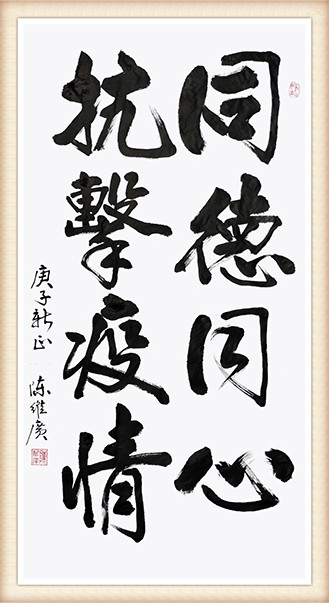 同德同心
抗擊疫情
庚子新正
陈维廣